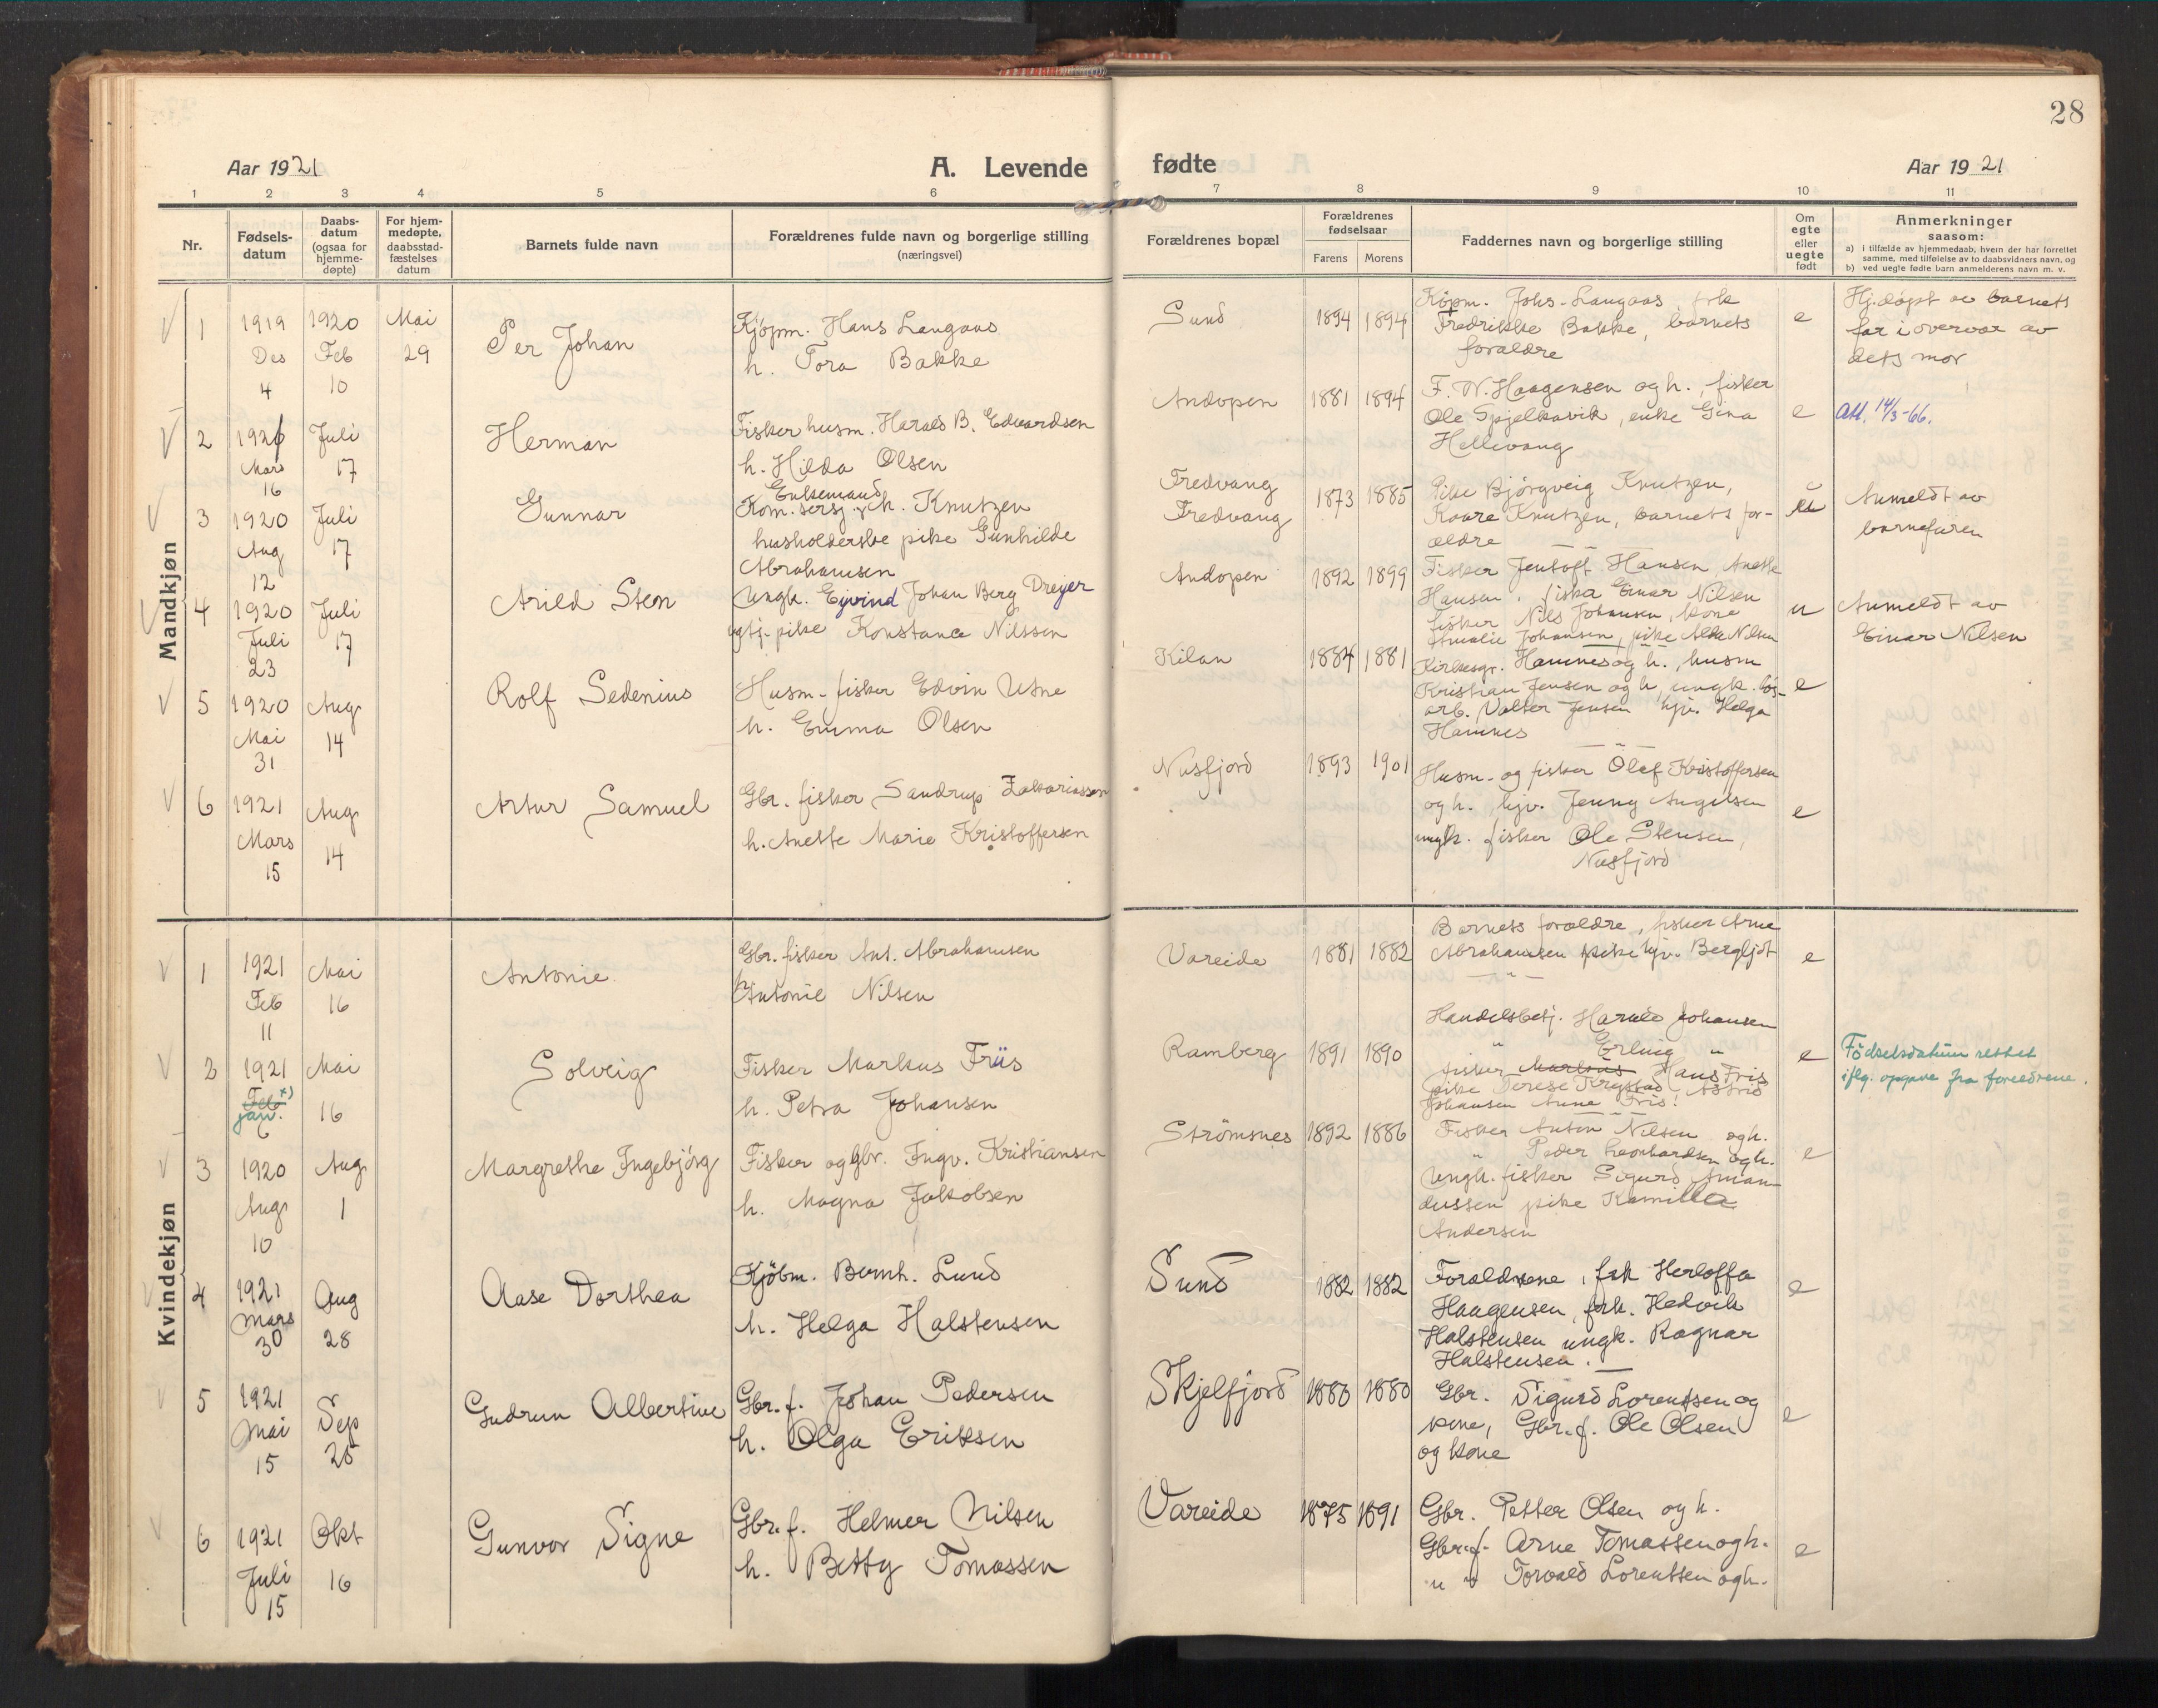 28
Aar 1921
A. Levende
fødte
Aar 1921
1 2 3 4 5 6
7 8 9 10 11
Nr.
Fødsels-
datum
Daabs-
datum
(ogsaa for
hjemme-
døpte)
For hjem-
medøpte,
daabsstad-
fæstelses
datum
Barnets fulde navn
Forældrenes fulde navn og borgerlige stilling
(næringsvei)
Forældrenes bopæl
Forældrenes
fødselsaar
Farens
Morens
Faddernes navn og borgerlige stilling
Om
egte
eller
uegte
født
Anmerkninger
saasom:
a) i tilfælde av hjemmedaab, hvem der har forrettet
samme, med tilføielse av to daabsvidners navn, og
b) ved uegte fødte barn anmelderens navn m. v.
Mandkjøn
1
1919
Des
4
1920
Feb
10
Mai
29
Per Johan
Kjøpm. Hans Langaas
h. Tora Bakke
Sund
1894 1894
Kjøpm. Johs. Langaas, frk
Fredrikke Bakke, barnets
forældre
e
Hj.døpt av barnets
far i overvær av
dets mor
2
Mars
16
Juli
17
Herman
Fisker husm. Harald B. Edvardsen
h. Hilda Olsen
Andopen
1881 1894
F. W. Haagensen og h., fisker
Ole Spjelkavik, enke Gina
Hellevang
e
Att. 14/3-66.
3
1920
Aug
12
Juli
17
Gunnar
Enkemand
Kom. h. Knutzen
husholderske pike Gunhilde
Abrahamsen
Fredvang
Fredvang
1873 1885
Pike Bjørgveig Knutzen,
Kaare Knutzen, barnets for-
ældre
Anmeldt av
barnefaren
4
1920
Juli
23
Juli
17
Arild Sten
Ungk. Ejvind Johan Berg Dreyer
pike Konstance Nilssen
Andopen
1892 1899
Fisker Jentoft Hansen, Anette
Hansen, fisker Einar Nilsen
fisker Nils Johansen, kone
Amalie Johansen, pike Nilsen
u
Anmeldt av
Einar Nilsen
5
1920
Mai
31
Aug
14
Rolf Sedenius
Husm.-fisker Edvin Utne
h. Emma Olsen
Kilan
1884 1881
Kirkesgr. Hamnes og h., husm
Kristian Jensen og h, ungk. løs-
arb. Valter Jensen hjv. Helga
Hamnes
e
6
1921
Mars
15
Aug
14
Artur Samuel
Gbr. fisker Sandrup Zakariassen
h. Anette Marie Kristoffersen
Nusfjord
1893 1901
Husm.- og fisker Olef Kristoffersen
og h. hjv. Jenny Angelsen
ungk. fisker Ole Stensen,
Nusfjord
e
Kvindekjøn
1
1921
Feb
11
Mai
16
Antonie
Gbr. fisker Ant. Abrahamsen
h. Antonie Nilsen
Vareide
1881 1882
Barnets forældre, fisker Arne
Abrahamsen pike hjv. Bergljot
— " —
e
2
1921
Feb x)
jan.
6
Mai
16
Solveig
Fisker Markus Friis
h. Petra Johansen
Ramberg
1891 1890
Handelsbetj. Harald Johansen
" Erling "
fisker Markus Hans Fris
pike Terese Krystad, Astrid
Johansen Anna Fris.
e
Födselsdatum rettet
iflg. opgave fra foreldrene.
3
1920
Aug
10
Aug
1
Margrethe Ingebjørg
Fisker og gbr. Ingv. Kristiansen
h. Magna Jakobsen
Strömsnes
1892 1886
Fisker Anton Nilsen og h.
" Peder Leonhardsen og h.
Ungk. fisker Sigurd Aman-
dussen pike Kamilla
Andersen
e
4
1921
Mars
30
Aug
28
Aase Dorthea
Kjöbm. Bernh. Lund
h. Helga Halstensen
Sund
1882 1882
Foreldrene, frk Herloffa
Haagensen, frk. Hedvik
Halstensen ungk. Ragnar
Halstensen.
e
5
1921
Mai
15
Sep
25
Gudrun Albertine
Gbr. f. Johan Pedersen
h. Olga Eriksen
Skjelfjord
1880 1880
Gbr. Sigurd Lorentsen og
kone, Gbr. f. Ole Olsen
og kone
e
6
1921
Juli
15
Okt
16
Gunvor Signe
Gbr. f. Helmer Nilsen
h. Betty Tomassen
Vareide
1875 1891
Gbr. Petter Olsen og h.
Gbr. f. Arne Tomassen og h.
" " Torvald Lorentsen og h.
e